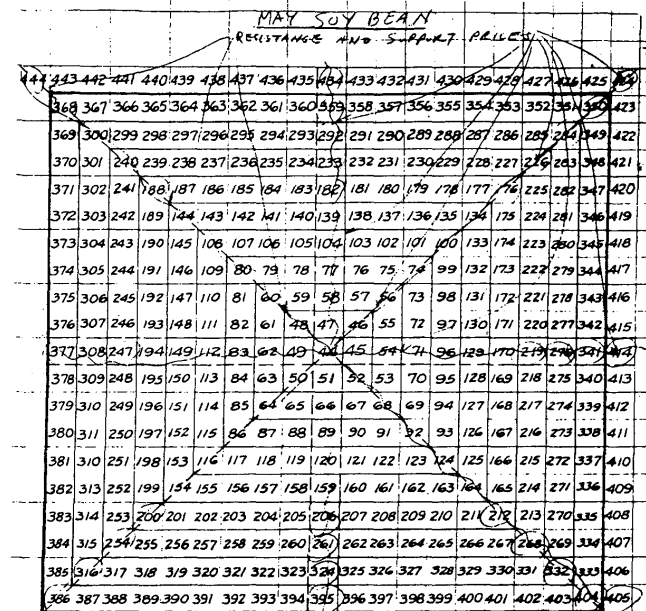 MAY SOY BEAN
RESISTANCE AND SUPPORT PRICES
444 443 442 441 440 439 438 437 436 435 434 433 432 431 430 429 428 427 426 425
368 367 366 365 364 363 362 361 360 359 358 357 356 355 354 353 352 351 350 423
369 300 299 298 297 296 295 294 293 292 291 290 289 288 287 286 285 284 349 422
370 301 240 239 238 237 236 235 234 233 232 231 230 229 228 227 226 283 348 421
371 302 241 188 187 186 185 184 183 182 181 180 179 178 177 76 225 282 347 420
372 303 242 189 144 143 142 141 140 139 138 137 136 135 134 175 224 281 346 419
373 304 243 190 145 108 107 106 105 104 103 102 101 100 133 174 223 280 345 418
374 305 244 191 146 109 80 79 78 77 76 75 74 99 132 173 222 279 344 417
375 306 245 192 147 110 81 60 59 58 57 56 73 98 131 172 221 278 343 416
376 307 246 193 148 111 82 61 48 47 46 55 72 97 130 171 220 277 342 415
377 308 247 194 149 112 83 62 49 44 45 54 71 96 129 170 219 276 341 414
378 309 248 195 150 113 84 63 50 51 52 53 70 95 128 169 218 275 340 413
379 310 249 196 151 114 85 64 65 66 67 68 69 94 127 168 217 274 339 412
380 311 250 197 152 115 86 87 88 89 90 91 92 93 126 167 216 273 338 411
381 310 251 198 153 116 117 118 119 120 121 122 123 124 125 166 215 272 337 410
382 313 252 199 154 155 156 157 158 159 160 161 162 163 164 165 214 271 336 409
383 314 253 200 201 202 203 204 205 206 207 208 209 210 211 212 213 270 335 408
384 315 254 255 256 257 258 259 260 261 262 263 264 265 266 267 268 269 334 407
385 316 317 318 319 320 321 322 323 324 325 326 327 328 329 330 331 332 333 406
386 387 388 389 390 391 392 393 394 395 396 397 398 399 400 401 402 403 404 405